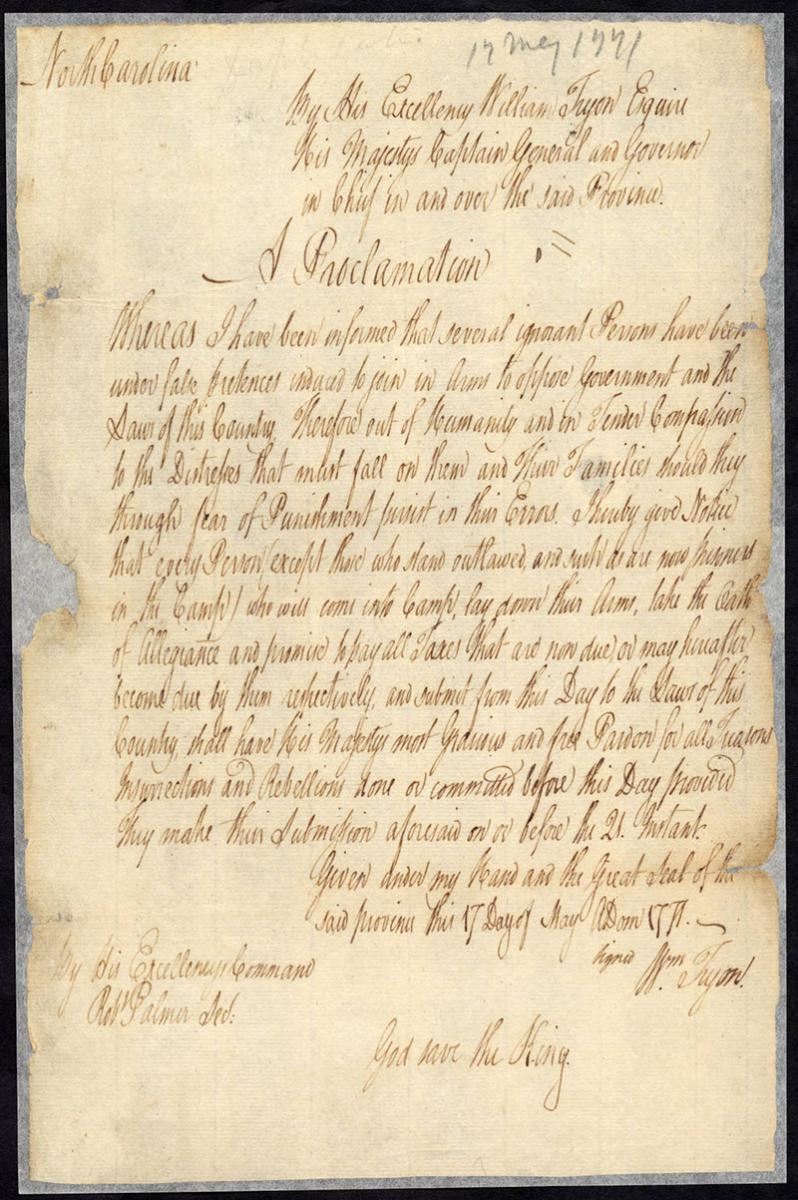 17 May 1771
North Carolina
By His Excellency William Tryon Esquire
His Majestys Captain General and Governor
in Chief in and over the said Province.
A Proclamation
Whereas I have been informed that several ignorant Persons have been
under false Pretences induced to join in Arms to oppose Government and the
Laws of this Country. Therefore out of Humanity and in Tender Compassion
to the Distresses that must fall on them and Their Families should they
through fear of Punishment persist in their Errors. I hereby give Notice
that every Person (except those who stand outlawed, and such as are now prisoners
in the Camp) who will come into Camp, lay down their Arms, take the Oath
of Allegiance and promise to pay all Taxes that are now due, or may hereafter
become due by them respectively, and submit from this Day to the Laws of this
Country, shall have His Majestys most Gracious and free Pardon for all Treasons
Insurrections and Rebellions done or committed before this Day provided
they make their Submission aforesaid on or before the 21. Instant.
Given under my Hand and the Great Seal of the
said province this 17 Day of May ADom 1771.
signed Wm Tryon.
By His Excellencys Command
Robt Palmer Sec:
God save the King.